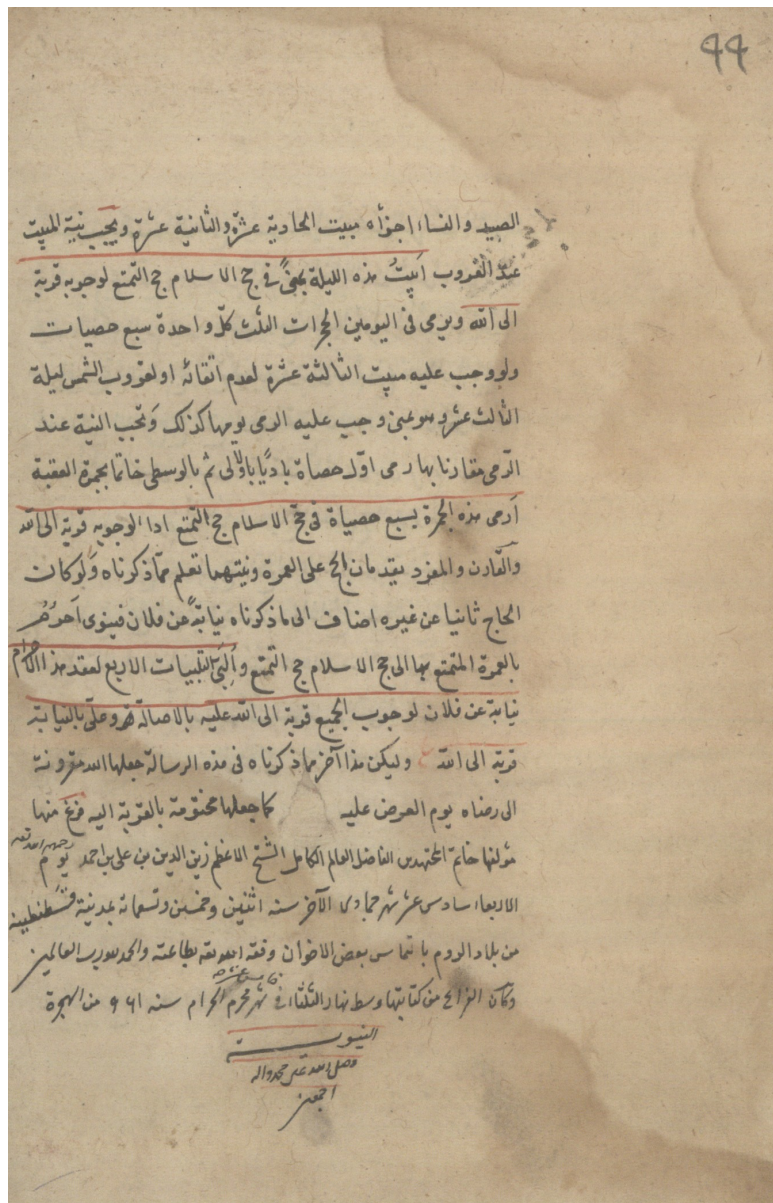 99
الصيد والنساء اجزأه مبيت الحادية عشرة والثانية عشرة ويجب نية المبيت
عند الغروب أبيتُ هذه الليلة بمنىً في حج الاسلام حج التمتع لوجوبه قربة
الى الله ويرمى فى اليومين الجمرات الثلث كل واحدة سبع حصيات
ولو وجب عليه مبيت الثالثة عشرة لعدم اتقائه او لغروب الشمس ليلة
الثالث عشر وهو بمنى وجب عليه الرمى يومها كذلك وتجب النية عند
الرمى مقارنا بها رمى اول حصاة باديًا بالاولى ثم بالوسطى خاتما بجمرة العقبة
أرمى هذه الجمرة بسبع حصياة فى حج الاسلام حج التمتع اداء لوجوبه قربة الى الله
والقارن والمفرد يقدمان الحج على العمرة ونيتهما تعلم مما ذكرناه ولو كان
الحاج نائبا عن غيره اضاف الى ما ذكرناه نيابةً عن فلان فينوى احرم
بالعمرة المتمتع بها الى حج الاسلام حج التمتع وألبّى التلبيات الاربع لعقد هذا الاحرام
نيابة عن فلان لوجوب الجميع قربة الى الله عليه بالاصالة وعلىّ بالنيابة
قربة الى الله وليكن هذا آخر ما ذكرناه فى هذه الرسالة جعلها الله مقرونة
الى رضاه يوم العرض عليه كما جعلها مختومة بالقربة اليه فرغ منها
مؤلفها خاتمة المجتهدين الفاضل العالم الكامل الشيخ الاعظم زين الدين بن على بن احمد رحمه الله تعه يوم
الاربعاء سادس عشر شهر جمادى الآخر سنه اثنين وخمسين وتسعمائه بمدينة قسطنطينية
من بلاد الروم بالتماس بعض الاخوان وفقه الله تعه بطاعته والحمد لله رب العالمين
وكان الفراغ من كتابتها وسط نهار الثلثاء فى شهر محرم الحرام سنه ٩٦١ من الهجرة
النبوية
وصلى الله على محمد واله
اجمعين